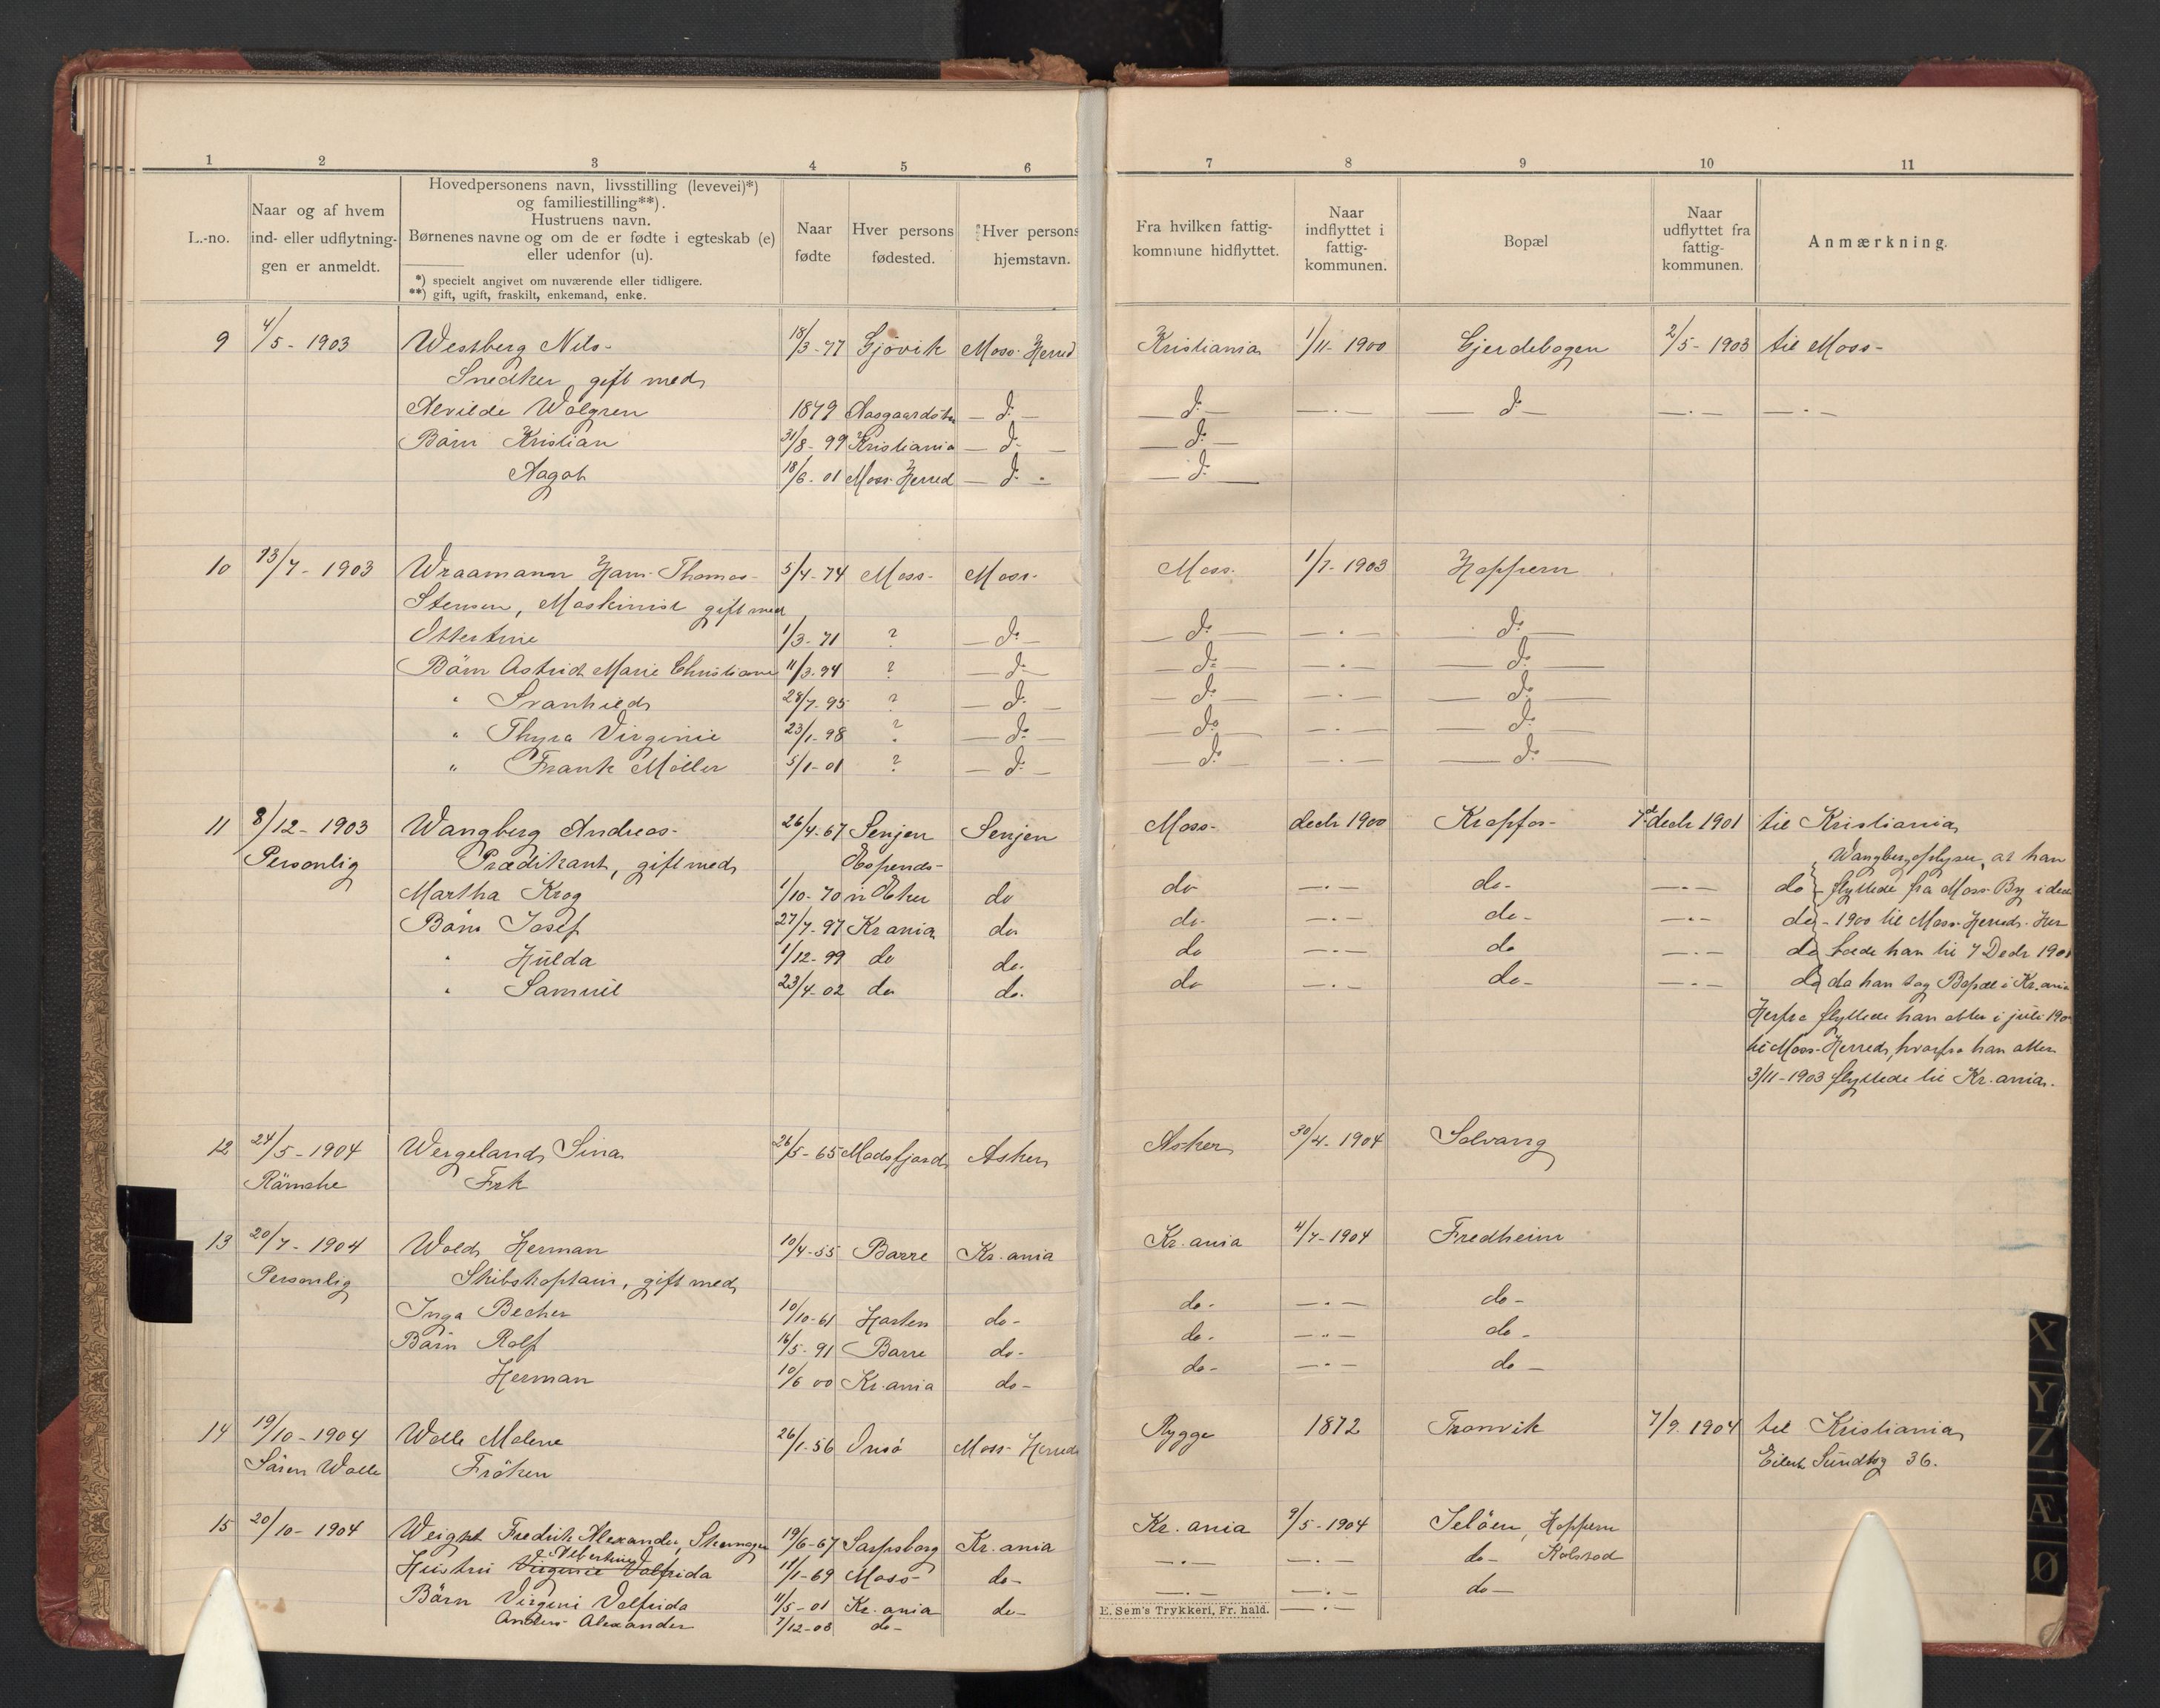 1 2 3 4 5 6 7 8 9 10 11
L.-no.
Naar og af hvem
ind- eller udflytnin-
gen er anmeldt.
Hovedpersonens navn, livsstilling (levevei)*)
og familiestilling**).
Hustruens navn.
Børnenes navne og om de er fødte i egteskab (e)
eller udenfor (u).
*) specielt angivet om nuværende eller tidligere.
**) gift, ugift, fraskilt, enkemand, enke.
Naar
fødte
Hver persons
fødested.
Hver persons
hjemstavn.
Fra hvilken fattig-
kommune hidflyttet.
Naar
indflyttet i
fattig-
kommunen.
Bopæl
Naar
udflyttet fra
fattig-
kommunen.
Anmærkning.
9 4/5 - 1903 Westberg Nils- 18/3-77 Gjövik Moss Herred Kristiania 1/11-1900 Gjerdebogen 2/5-1903 til Moss-
Snedker, gift med
Alvilde Walgren 1879 Aasgaardstr — do — — do — —.— — do — —.— —.—
Börn Kristian 31/8-99 Kristiania — do — — do —
Aagot 18/6-01 Moss Herred — do — — do —
10 13/7-1903 Wraamann Hans Thomas- 5/4-74 Moss- Moss- Moss- 1/7-1903 Hoppern
Stensen, Maskinist gift med
Ostertine 1/3-71 ? — do — — do — —.— — do —
Börn Astrid Marie Christiane 11/3-94 ? — do — — do — —.— — do —
" Svanhild 28/7-95 ? — do — — do — —.— — do —
" Thyra Virginie 23/1-98 ? — do — — do — —.— — do —
" Frank Möller 5/1-01 ? — do — — do — —.— — do —
11 8/12-1903 Wangberg Andreas- 26/4-67 Senjen Senjen Moss- decbr 1900 Krapfos- 7de decbr 1901 til Kristiania
Personlig Prædikant, gift med Wangberg oplyser, at han
Martha Krog 1/10-70 Espends- n Eker do do —.— do- —.— do flyttede fra Moss By i decbr
Börn Josef 27/7-97 Kr.ania do do- —.— do- —.— do - 1900 til Moss Herred. Her
" Hulda 1/12-99 do do. do —.— do —.— do boede han til 7 Decbr 1901
" Samuel 23/4-02 do do. do —.— do- —.— do da han tog Bopæl i Kr.ania
Herfra flyttede han atter i juli 190
til Moss-Herred, hvorfra han atter
3/11-1903 flyttede til Kr.ania.
12 24/5-1904 Wergeland Sina 26/5-65 Madsfjord Asker Asker 30/4-1904 Solvang
Römcke Frk
13 20/7-1904 Wold Herman 10/4-55 Barre Kr.ania Kr.ania 4/7-1904 Fredheim
Personlig Skibskaptain, gift med
Inga Becher 10/10-61 Horten do- do- —.— do-
Börn Rolf 16/5-91 Barre do- do- —.— do-
Herman 10/6 00 Kr.ania do- do- —.— do-
14 19/10-1904 Wolle Malene 26/1-56 Onsö Moss-Herred Rygge 1872 Tronvik 7/9 1904 til Kristiania
Sören Wolle Fröken Eilert Sundtsg 36.
15 20/10-1904 Weight Fredrik Alexander, Skomager 19/6-67 Sarpsborg Kr.ania Kr.ania 9/5-1904 Jelöen, Hoppern
Albertine
Hustru Virginie Valfrida 11/1-69 Moss- do- —.— —.— do- Kolsrod
Börn Virgini Valfrida 11/5-01 Kr.ania do- —.— —.— do-
Anders Alexander 7/12-03 do- —.—
E. Sem's Trykkeri, Fr.hald.
X
Y
Z
Æ
Ø